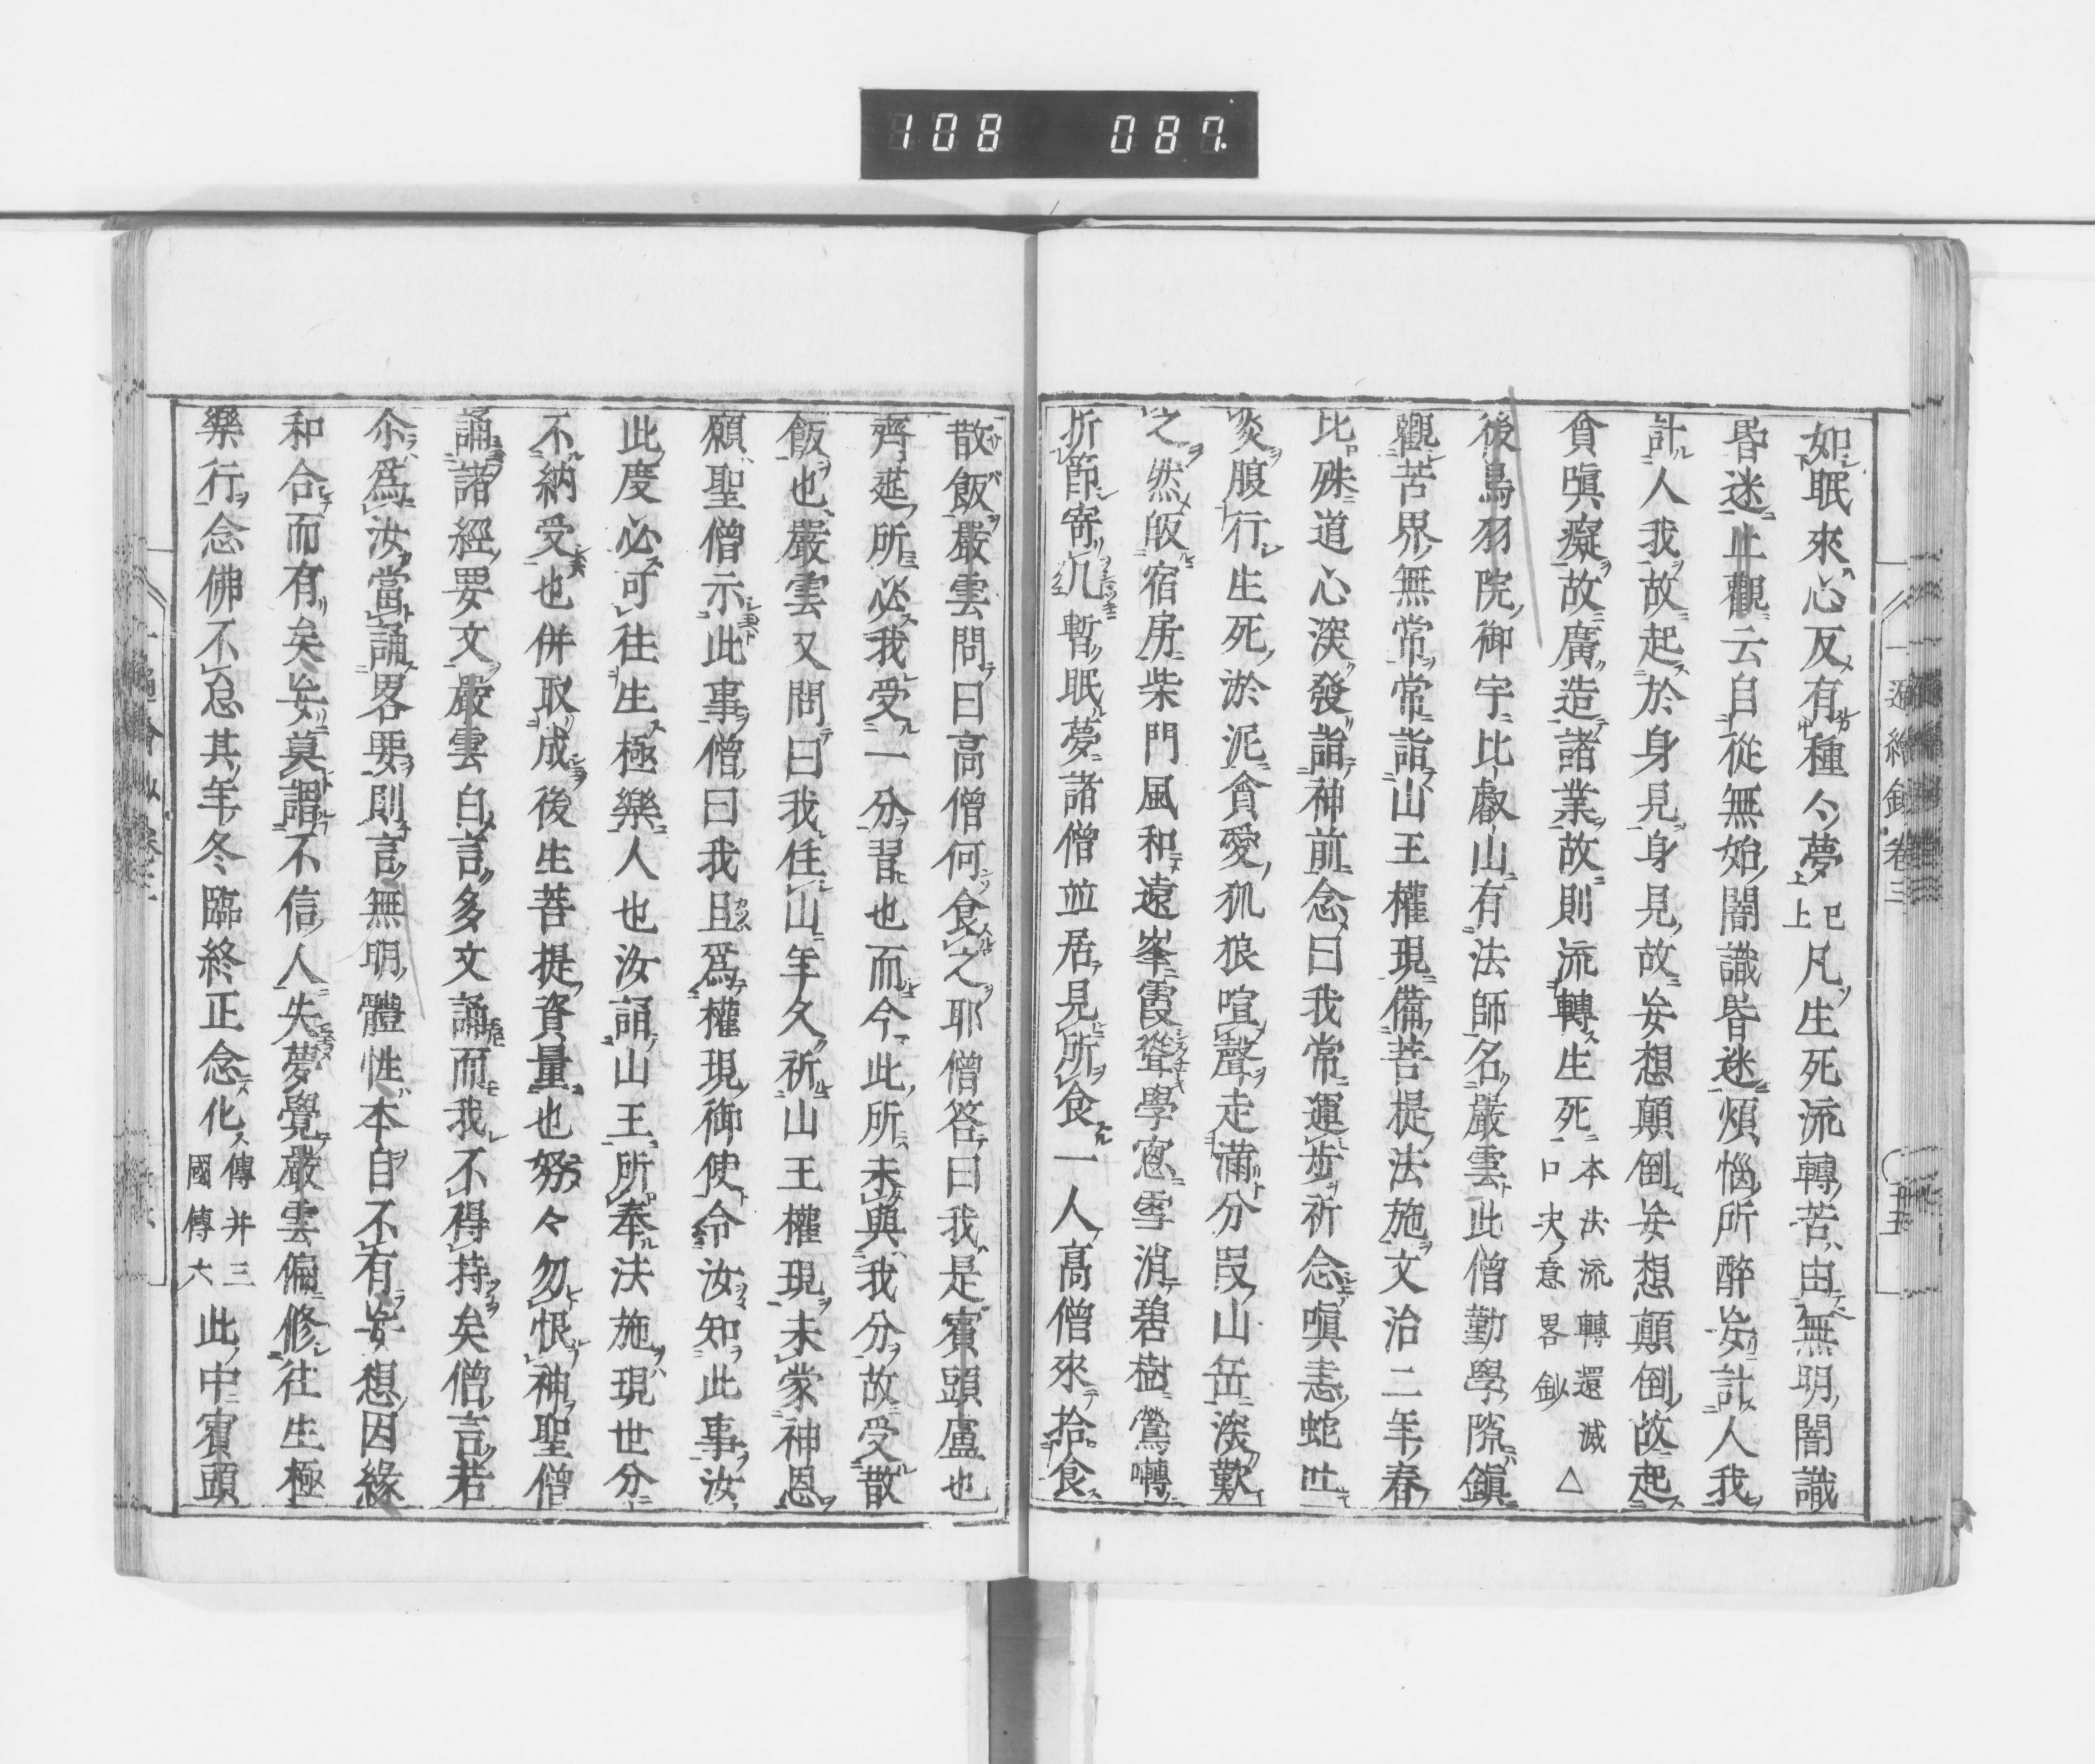 108 087
一遍繪鈔卷三
如眠來心反有種々夢已上上凡生死流轉苦由無明闇識
昏迷止觀云自從無始闇識昏迷煩惱所醉妄計人我
計人我故起於身見身見故妄想顛倒妄想顛倒故起
貪嗔癡故廣造諸業故則流轉生死本法流轉還滅口決意畧鈔△
後鳥羽院御宇比叡山有法師名嚴雲此僧勤學隙鎭
觀苦界無常常詣山王權現備菩提法施文治二年春
比殊道心深發詣神前念曰我常運步祈念嗔恚蛇吐
炎腹行生死淤泥貪愛狐狼喧聲走滿分段山岳深歎
之然皈宿房柴門風和遠峯霞聳學窻雪消碧樹鶯囀
折節寄几暫眠夢諸僧並居見所食一人高僧來拾食
散飯嚴雲問曰高僧何食之耶僧答曰我是賓頭盧也
齊莚所必我受一分習也而今此所未與我分故受散
飯也嚴雲又問曰我住山年久祈山王權現未蒙神恩
願聖僧示此事僧曰我且爲權現御使令汝知此事汝
此度必可往生極樂人也汝誦山王所奉法施現世分
不納受也併取成後生菩提資量也努々勿恨神聖僧
誦諸經要文嚴雲白言多文誦而我不得持矣僧言若
尒爲汝當誦畧要則言無明體性本自不有妄想因緣
和合而有矣妄莫謂不信人失夢覺嚴雲偏修往生極
樂行念佛不怠其年冬臨終正念化傳并三國傳六此中賓頭